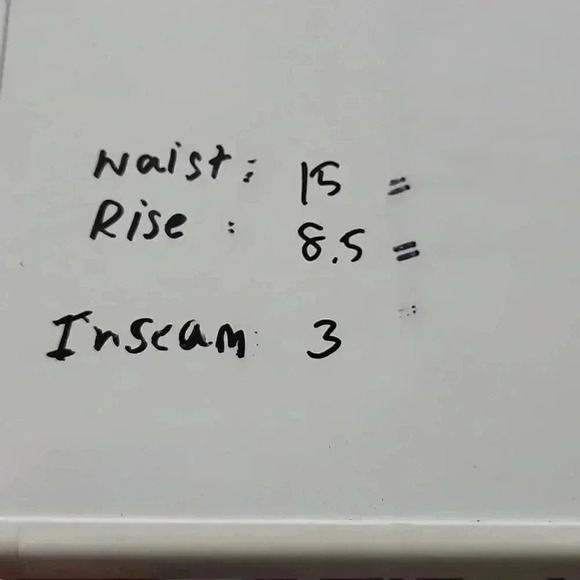 Waist: 15 =
Rise : 8.5 =
Inseam: 3